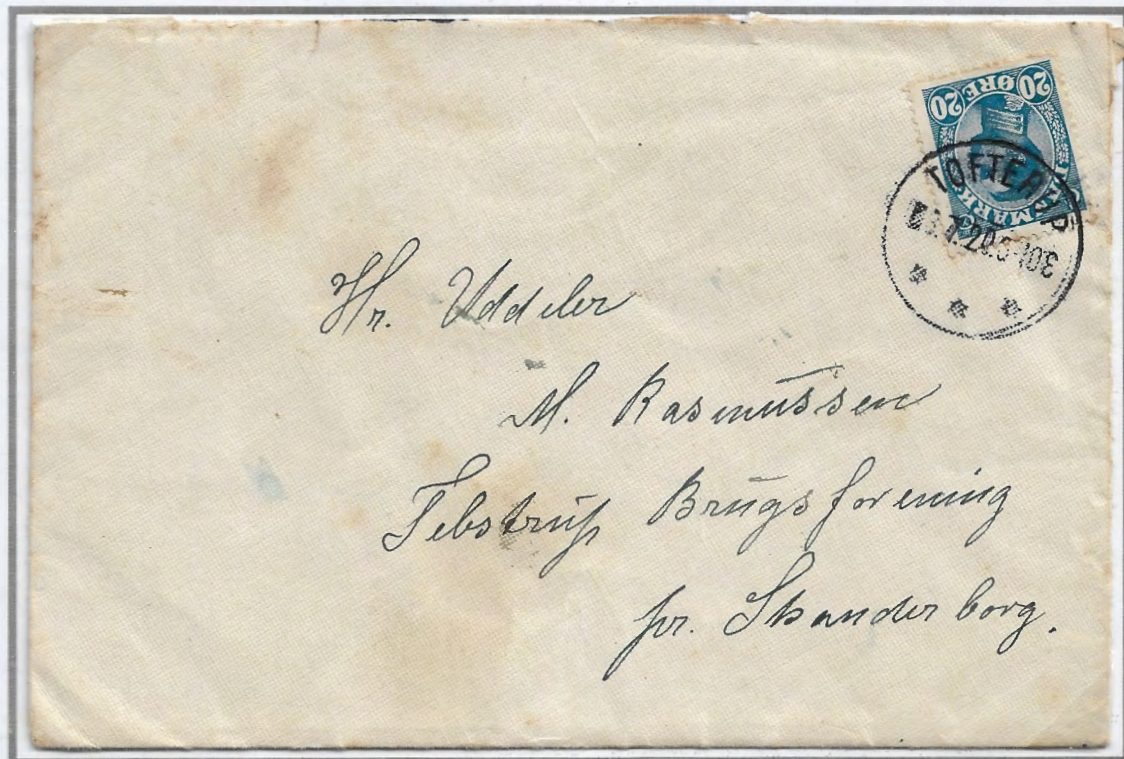 20 ØRE 20
DANMARK
TOFTERUP
Hr. Uddeler
M. Rasmussen
Tebstrup Brugsforening
pr. Skanderborg.